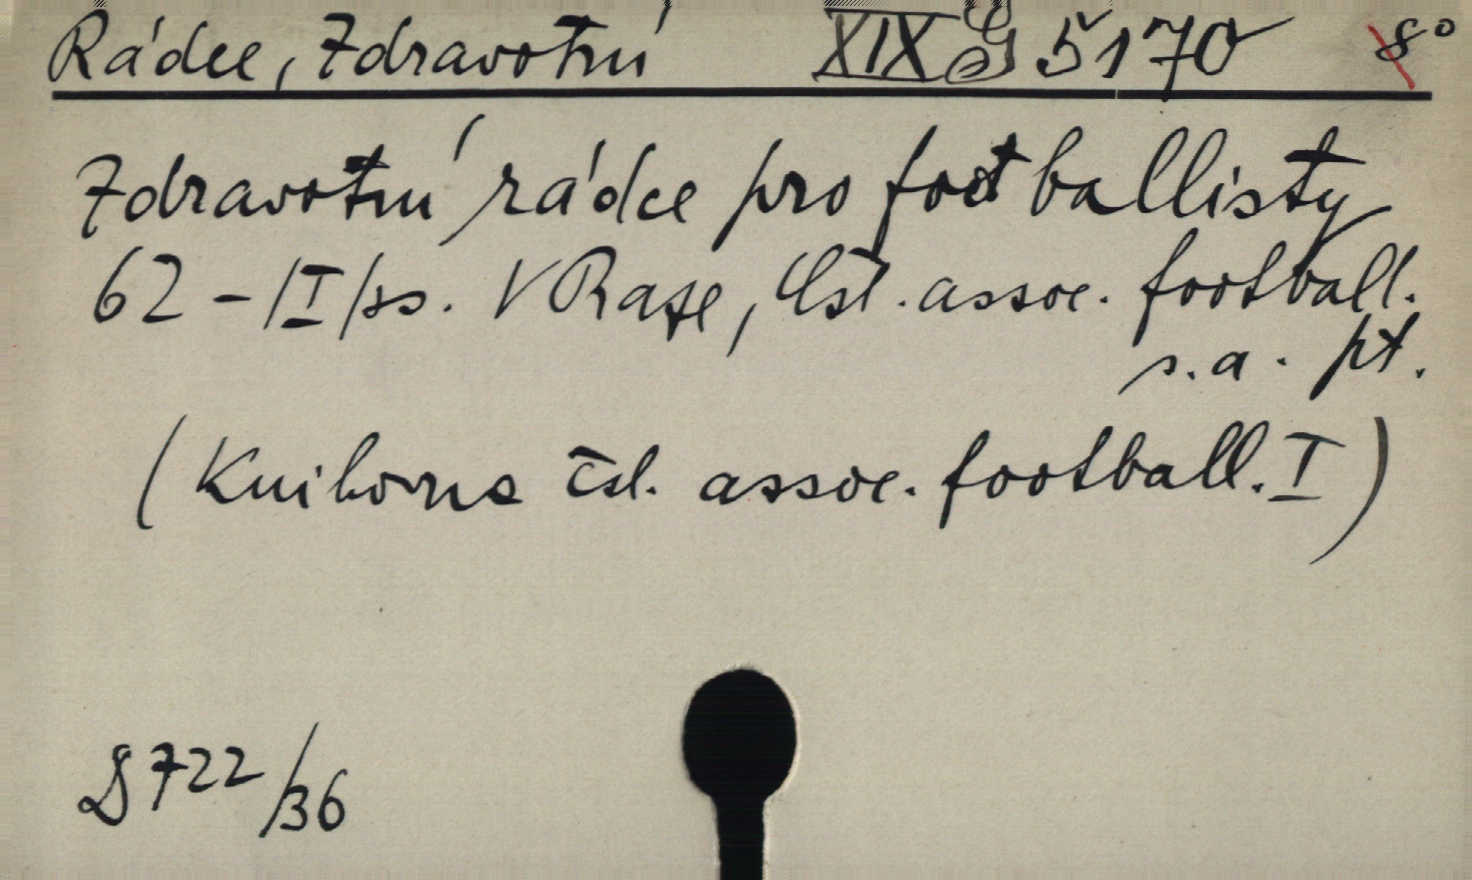 Rádce, Zdravotní XIX G 5170 8°
Zdravotní rádce pro footballisty
62 - /I/ ss. V Praze, Čsl. assoc. football.
s. a. pt.
(Knihovna čsl. assoc. football. I)
D 722/36